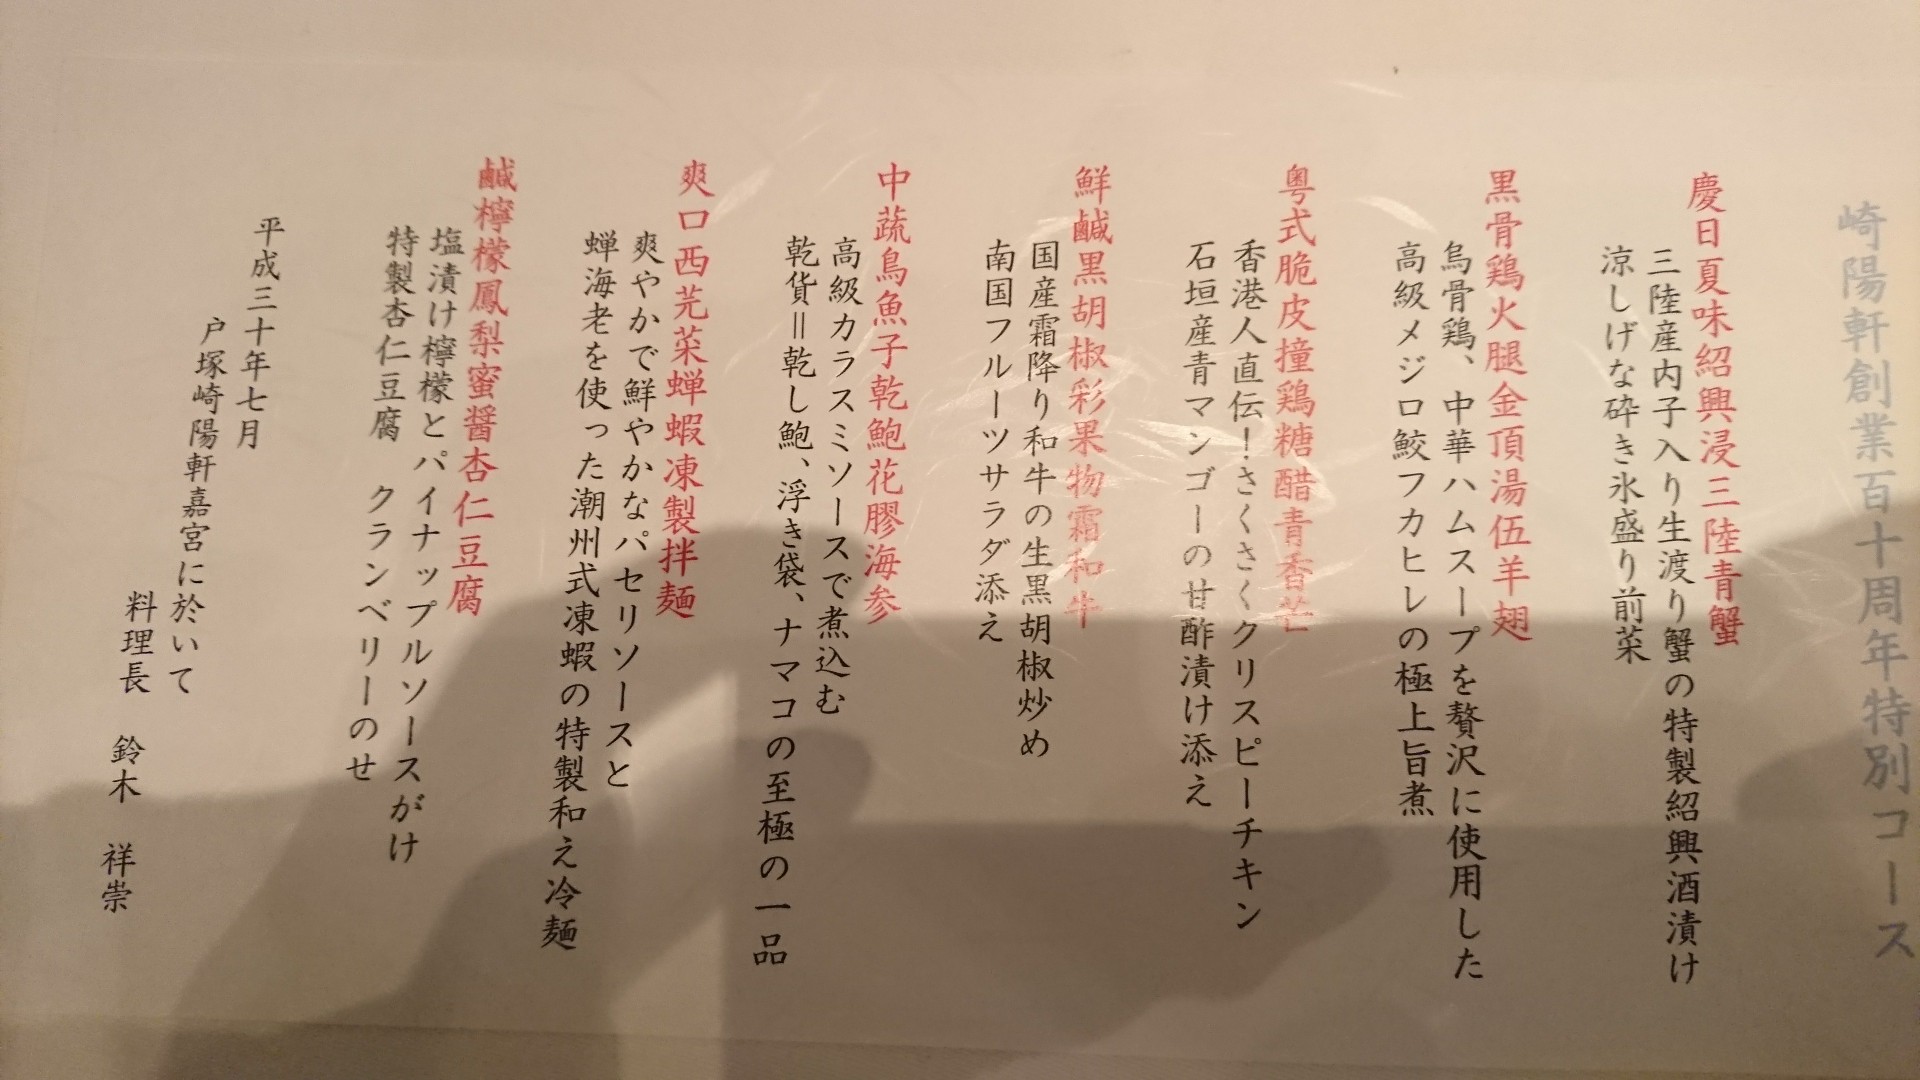 崎陽軒創業百十周年特別コース
慶日夏味紹興浸三陸青蟹
三陸産内子入り生渡り蟹の特製紹興酒漬け
涼しげな砕き氷盛り前菜
黒骨鶏火腿金頂湯伍羊翅
烏骨鶏、中華ハムスープを贅沢に使用した
高級メジロ鮫フカヒレの極上旨煮
粤式脆皮撞鶏糖醋青香芒
香港人直伝！さくさくクリスピーチキン
石垣産青マンゴーの甘酢漬け添え
鮮鹹黒胡椒彩果物霜和牛
国産霜降り和牛の生黒胡椒炒め
南国フルーツサラダ添え
中蔬鳥魚子乾鮑花膠海参
高級カラスミソースで煮込む
乾貨＝乾し鮑、浮き袋、ナマコの至極の一品
爽口西芫菜蝉蝦凍製拌麺
爽やかで鮮やかなパセリソースと
蝉海老を使った潮州式凍蝦の特製和え冷麺
鹹檸檬鳳梨蜜醤杏仁豆腐
塩漬け檸檬とパイナップルソースがけ
特製杏仁豆腐　クランベリーのせ
平成三十年七月
戸塚崎陽軒嘉宮に於いて
料理長　鈴木　祥崇